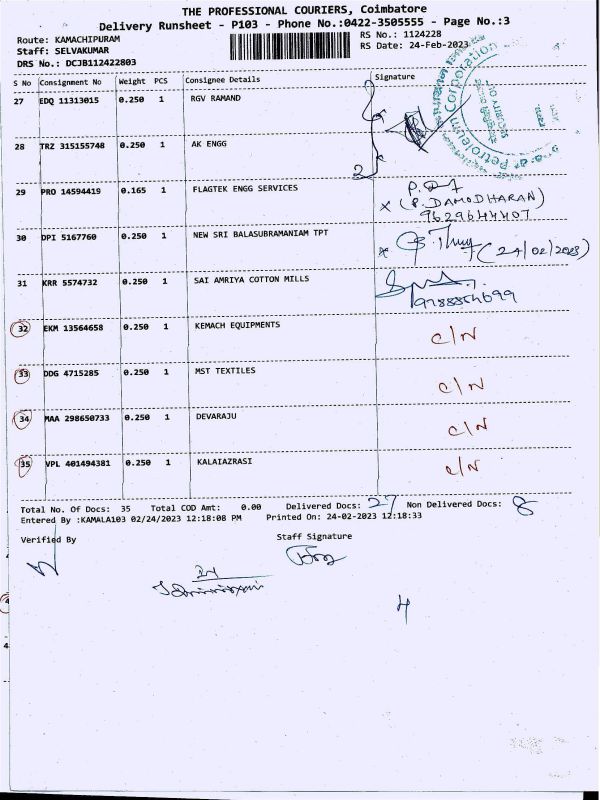 THE PROFESSIONAL COURIERS, Coimbatore
Delivery Runsheet - P103 - Phone No.:0422-3505555 - Page No.:3
Route: KAMACHIPURAM
RS No.: 1124228
Staff: SELVAKUMAR
RS Date: 24-Feb-2023
DRS No.: DCJB112422803
S No Consignment No Weight PCS Consignee Details Signature
27 EDQ 11313015 0.250 1 RGV RAMAND
28 TRZ 315155748 0.250 1 AK ENGG
2
Petroleum Corporation
29 PRO 14594419 0.165 1 FLAGTEK ENGG SERVICES
x (P. DAMODHARAN)
9629644407
30 DPI 5167760 0.250 1 NEW SRI BALASUBRAMANIAM TPT
x (24/02/2023)
31 KRR 5574732 0.250 1 SAI AMRIYA COTTON MILLS
32 EKM 13564658 0.250 1 KEMACH EQUIPMENTS C/N
33 DDG 4715285 0.250 1 MST TEXTILES C/N
34 MAA 298650733 0.250 1 DEVARAJU C/N
35 VPL 401494381 0.250 1 KALAIAZRASI C/N
Total No. Of Docs: 35 Total COD Amt: 0.00 Delivered Docs: 27 Non Delivered Docs: 8
Entered By :KAMALA103 02/24/2023 12:18:08 PM Printed On: 24-02-2023 12:18:33
Verified By Staff Signature
4